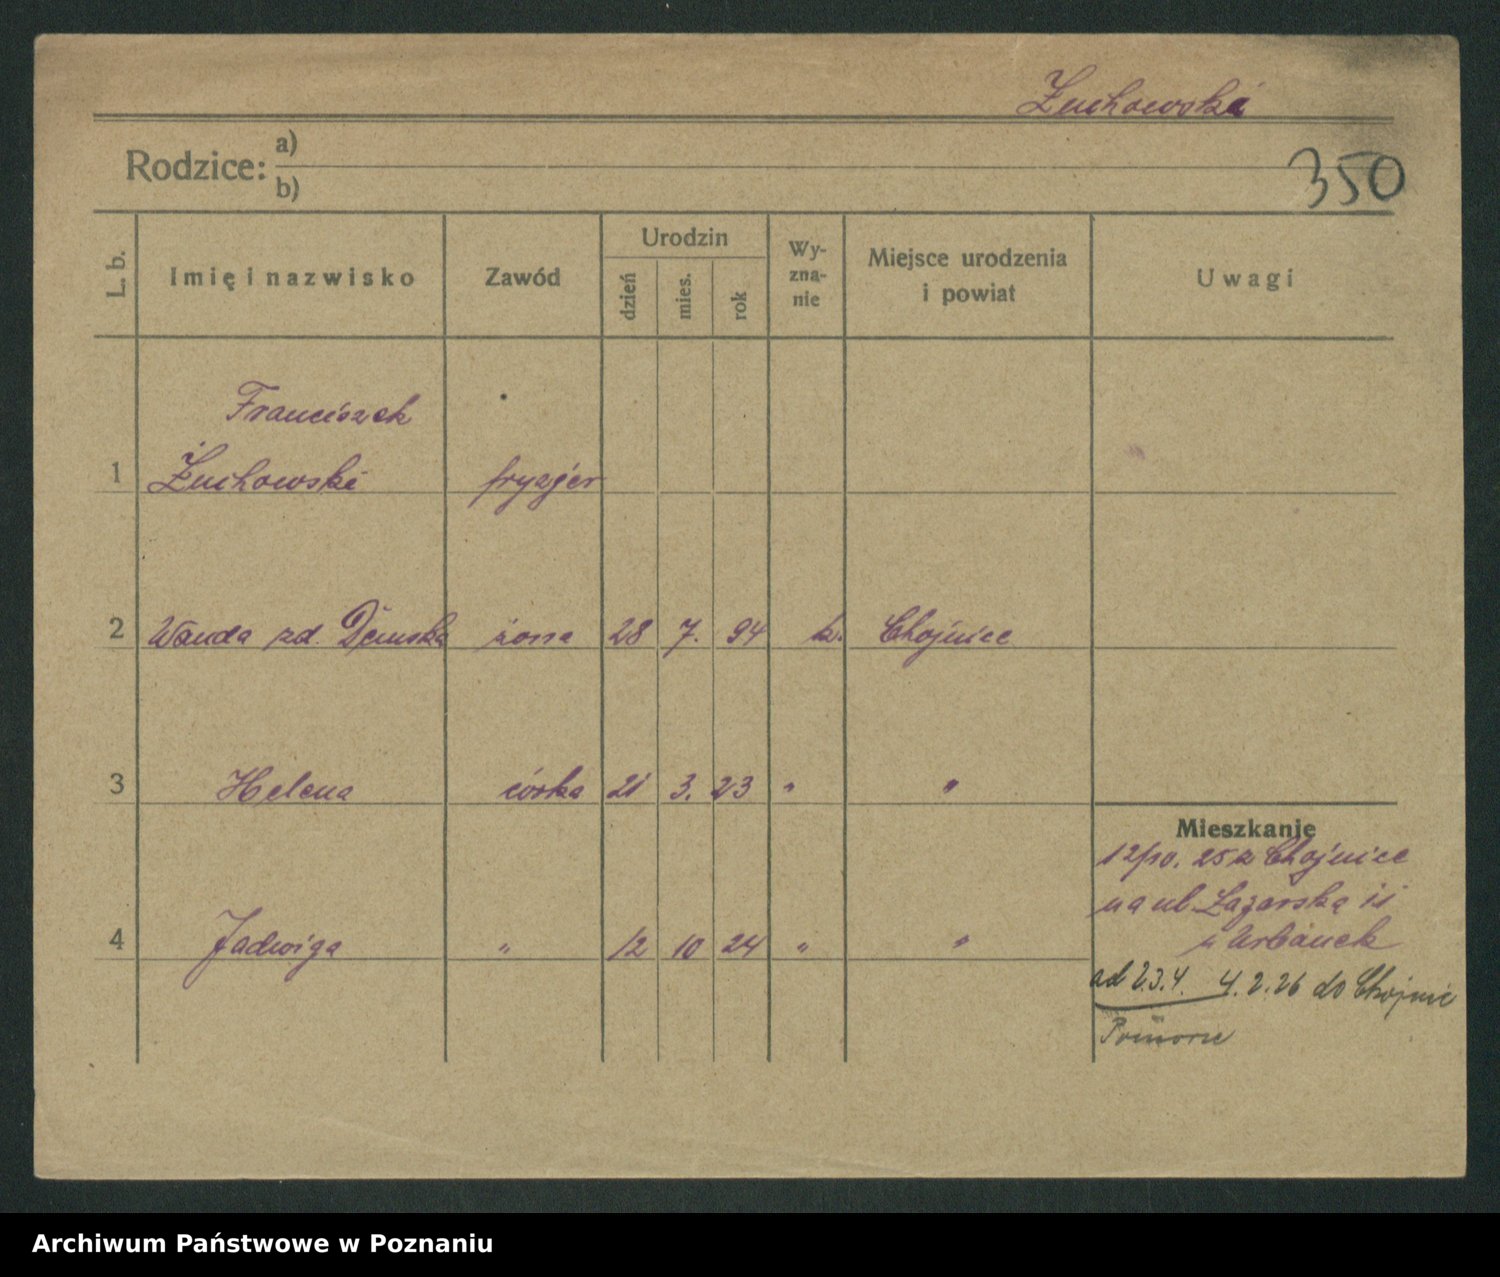 Żuchowski
Rodzice: a)
b)
350
L. b. Imię i nazwisko Zawód Urodzin dzień mies. rok Wy-zna-nie Miejsce urodzenia i powiat Uwagi
Franciszek
1 Żuchowski fryzjer
2 Wanda zd Demska żona 28 7. 94 k. Chojnice
3 Helena córka 21 3. 23 " "
Mieszkanie
12/10. 25 z Chojnice
na ul Łazarską 11
4 Jadwiga " 12 10 24 " "
u Urbanek
ad 23.4. 4.2.26 do Chojnic
Pomorze
Archiwum Państwowe w Poznaniu